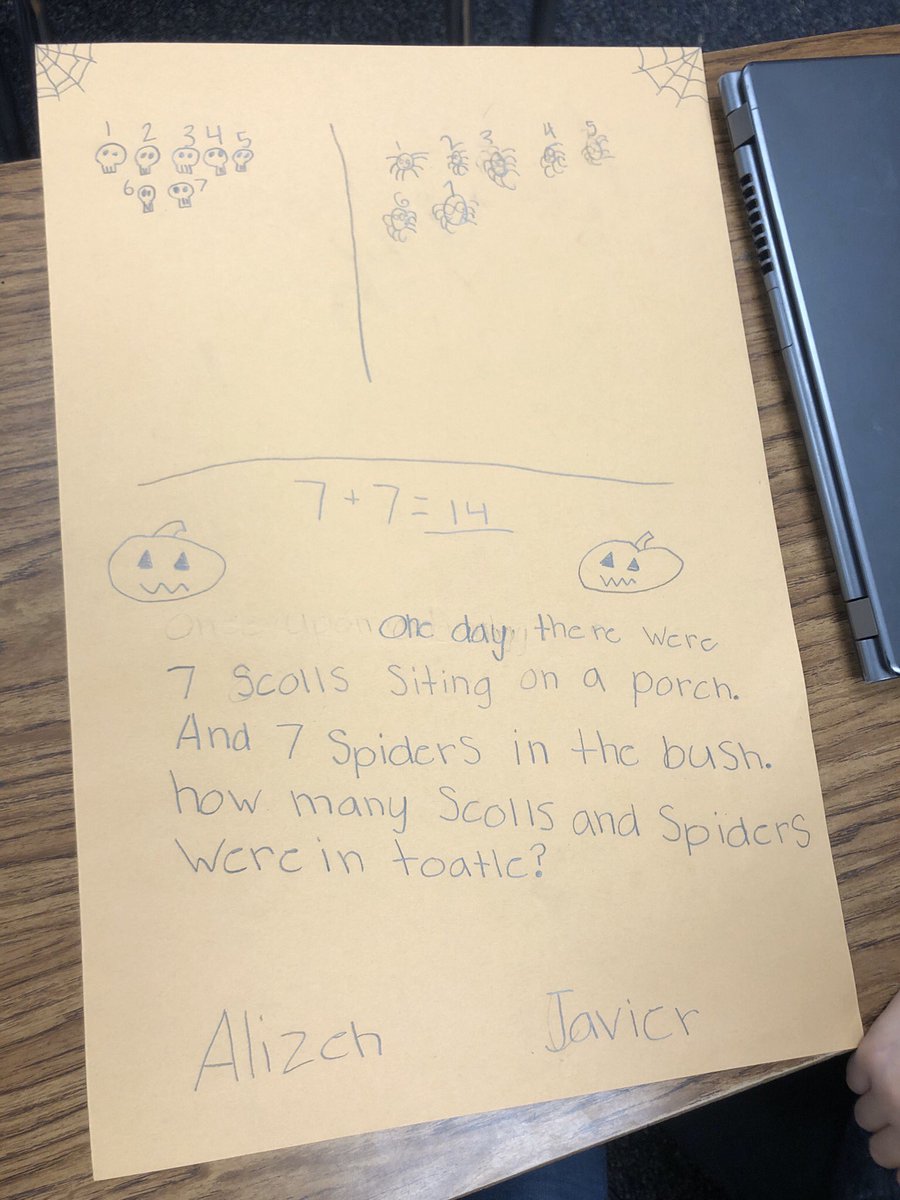 1 2 3 4 5
6 7
1 2 3 4 5
6 7
7 + 7 = 14
One day there were
7 Scolls Siting on a porch.
And 7 Spiders in the bush.
how many Scolls and Spiders
Were in toatle?
Alizeh
Javier